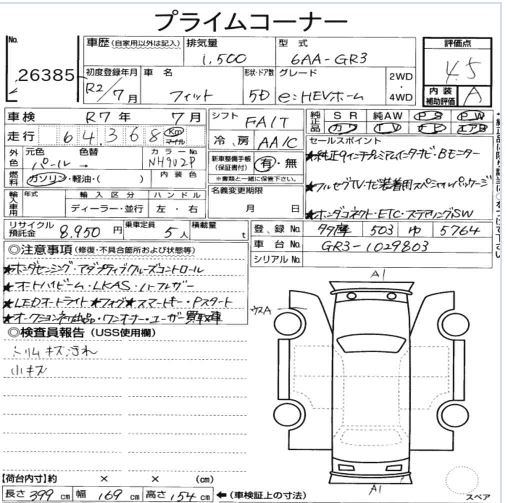 プライムコーナー
No. 26385
車歴 (自家用以外は記入) 排気量 1,500 型式 6AA-GR3
評価点 4.5
初度登録年月 R2/7月 車名 フィット 形状・ドア数 5D グレード e:HEVホーム 2WD・4WD
内装補助評価 A
車検 R7年 7月 シフト FAIT
純正品 SR 純AW PS PW カワ TV ナビ エアB
走行 64,368 Km マイル 冷房 AAC
セールスポイント
外色 元色 パール 色替 カラーNo. NH902P
新車整備手帳(保証書付) 有・無
※書類と一緒に保管して下さい
★純正9インチプレミアムインターナビ・Bモニター
燃料 ガソリン・軽油・( ) 内装色
名義変更期限 月 日
★フルセグTV・ナビ装着用スペシャルパッケージ
輸入車用 輸入区分 ディーラー・並行 ハンドル 左・右
★ホンダコネクト・ETC・ステアリングSW
リサイクル預託金 8,950円 乗車定員 5人 積載量 t
登録No. 多摩 503 ゆ 5764
車台No. GR3-1029803
シリアルNo.
◎注意事項 (修復・不具合箇所および状態等)
★ホンダセンシング・アダプティブクルーズコントロール
★オートハイビーム・LKAS・
★LEDオートライト★フォグ★スマートキー・Pスタート
★オークション初出品・ワンオーナー・ユーザー買取車
◎検査員報告 (USS使用欄)
トリムキズ汚れ
小キズ
A1
ウスA
A1
スペア
【荷台内寸】約 × × (cm)
長さ 399 cm 幅 169 cm 高さ 154 cm ←(車検証上の寸法)